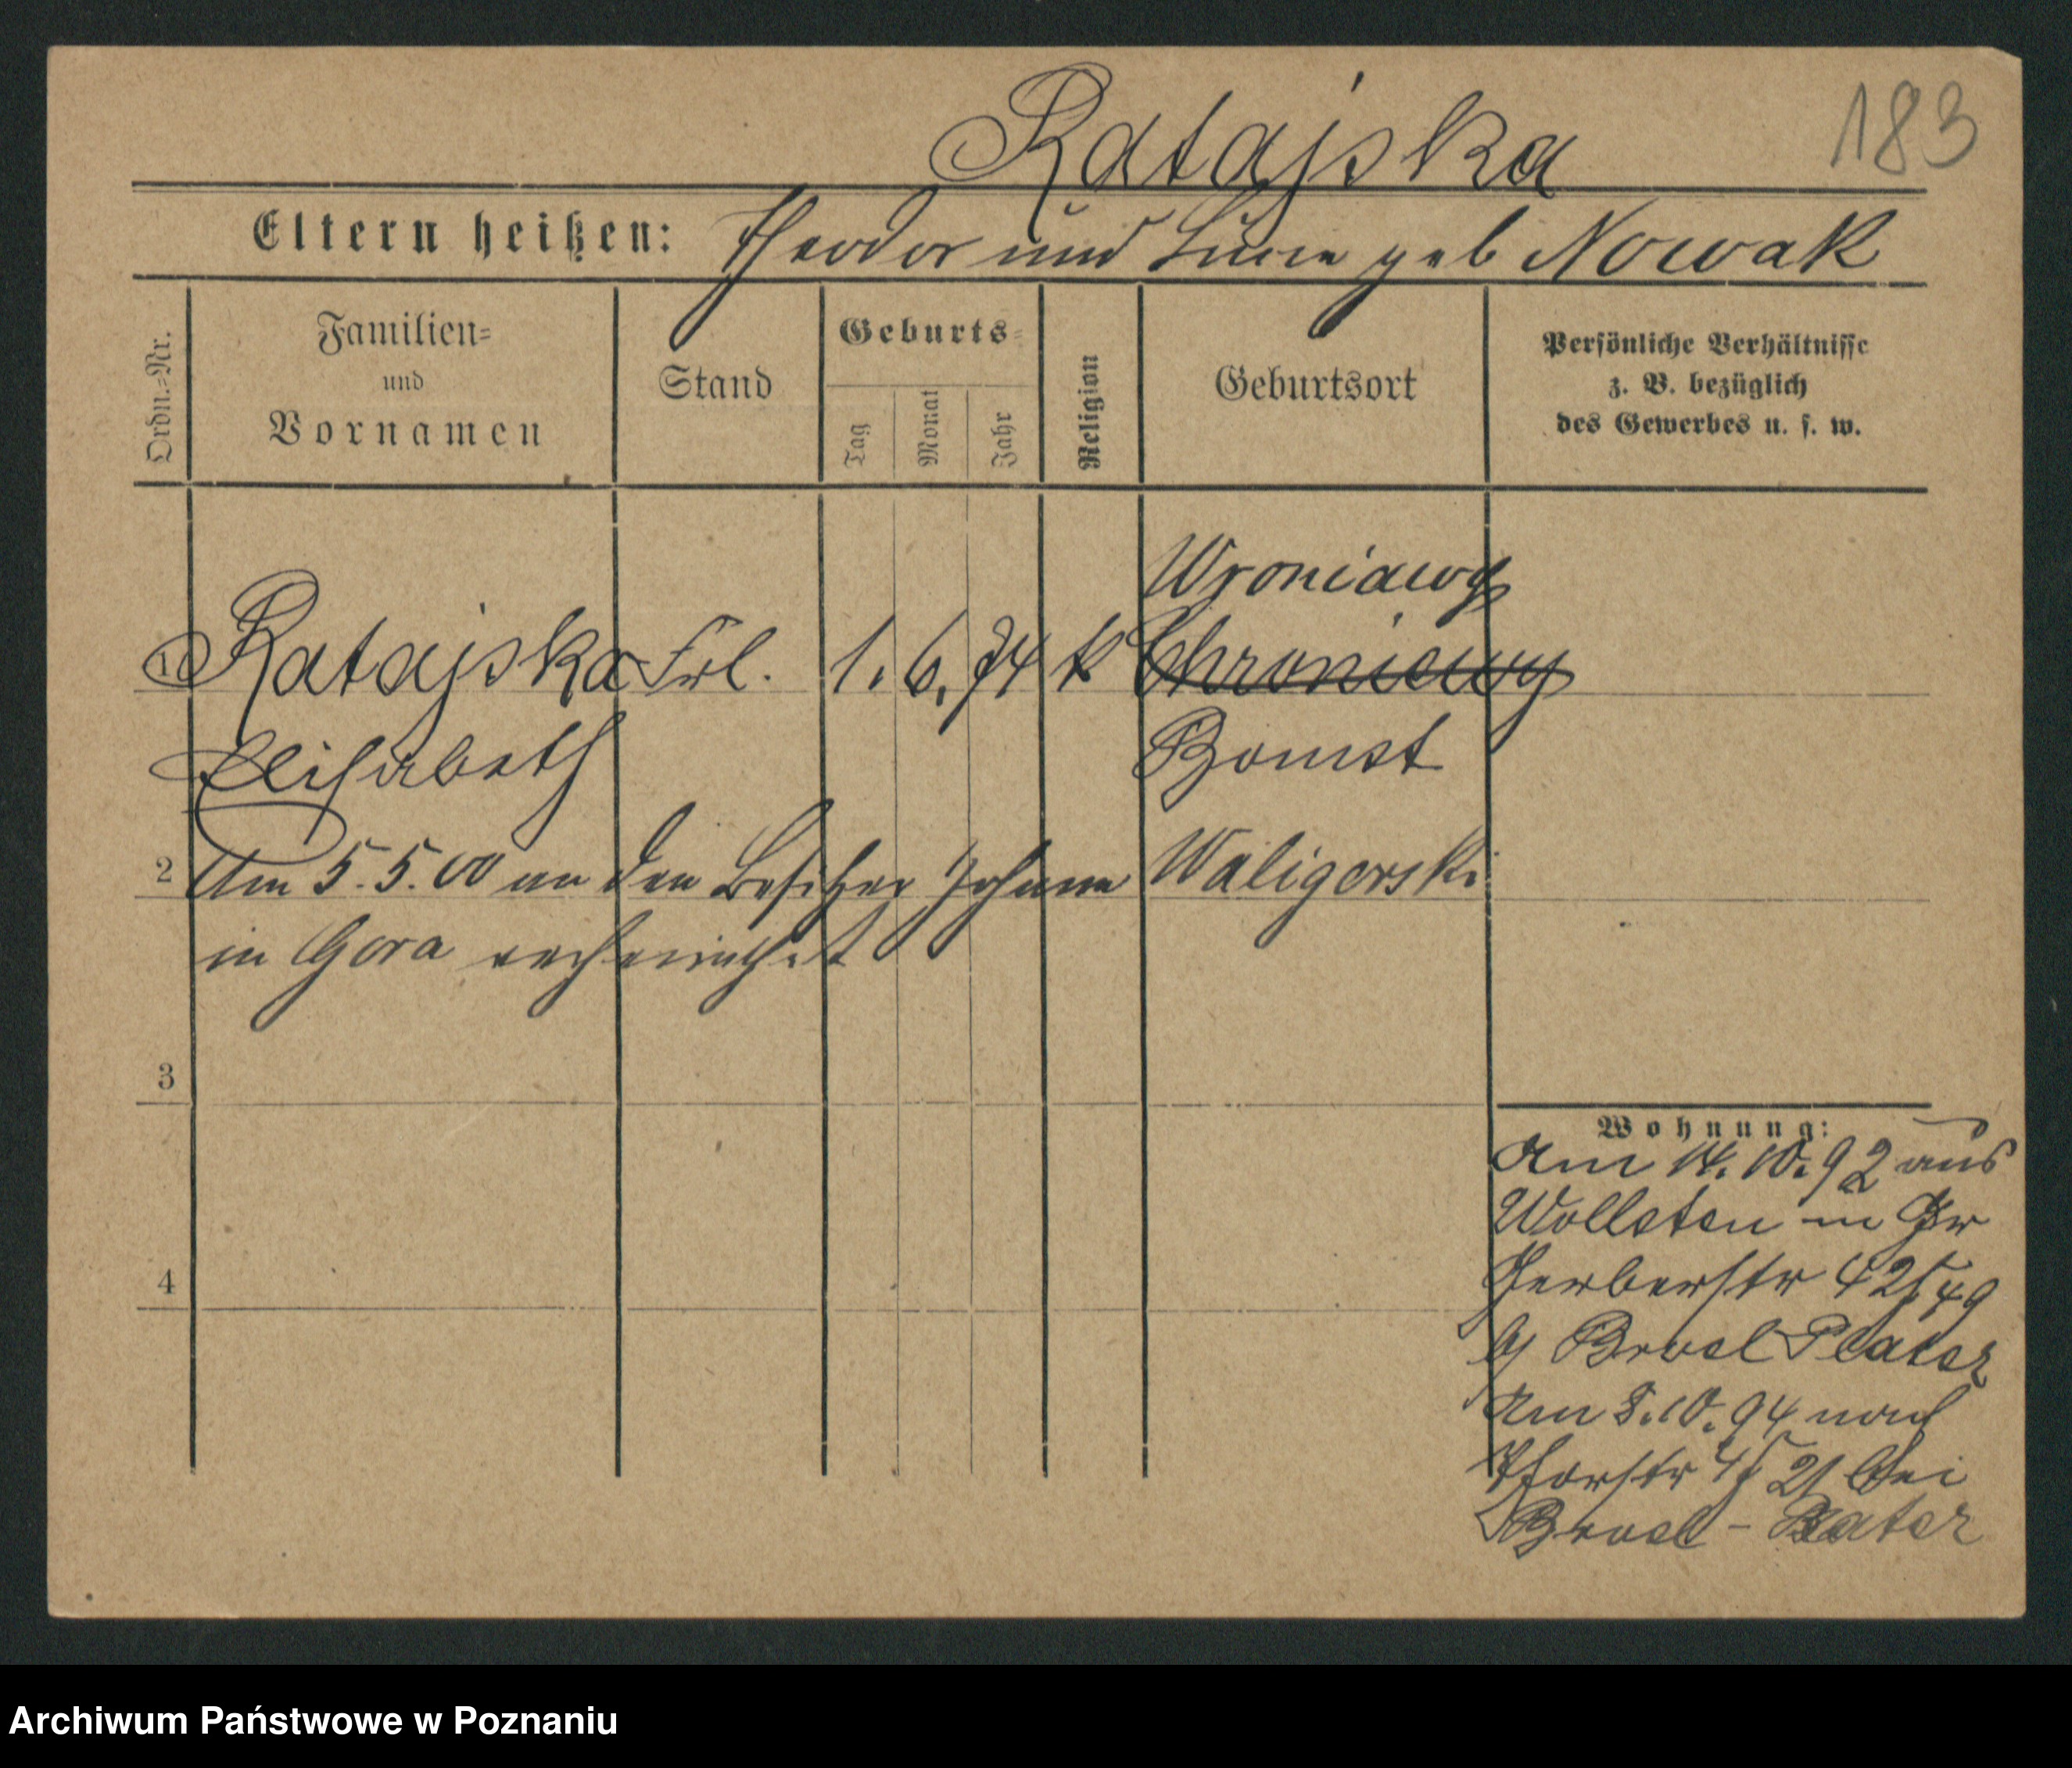 183
Ratajska
Eltern heißen: Theodor und Lucie geb Nowak
Ordn.=Nr.
Familien=
und
Vornamen
Stand
Geburts=
Tag
Monat
Jahr
Religion
Geburtsort
Persönliche Verhältnisse
z. B. bezüglich
des Gewerbes u. s. w.
Wroniawy
1 Ratajska Frl. 1. 6. 74 k Chroniewy
Elisabeth Bomst
2 Am 5. 5. 00 an den Besitzer Johann Waligorski
in Gora verheirathet
3
4
Wohnung:
Am 14. 10. 92 aus
Wollstein in Gr
Gerberstr 42/49
b/ Broel Plater
Am 8. 10. 94 nach
bei
Broel - Plater
Archiwum Państwowe w Poznaniu